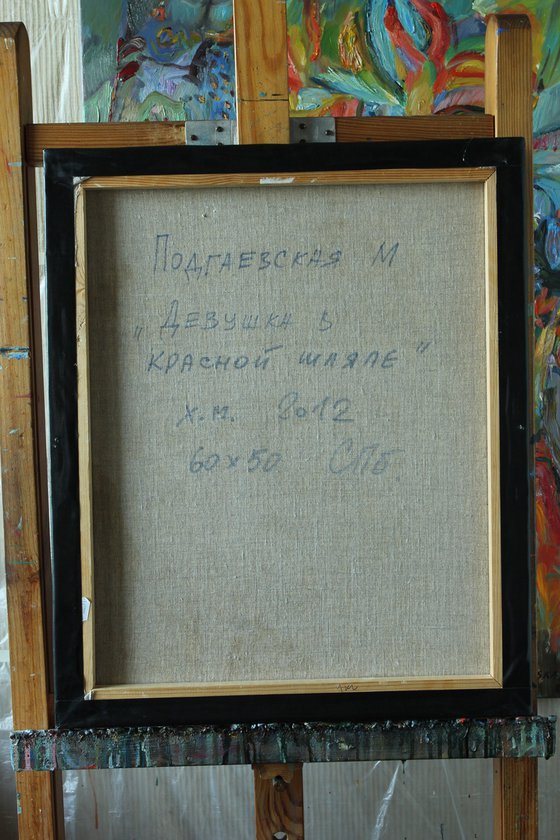 Подгаевская М
„Девушка в
красной шляпе"
х.м. 2012
60х50 СПб.